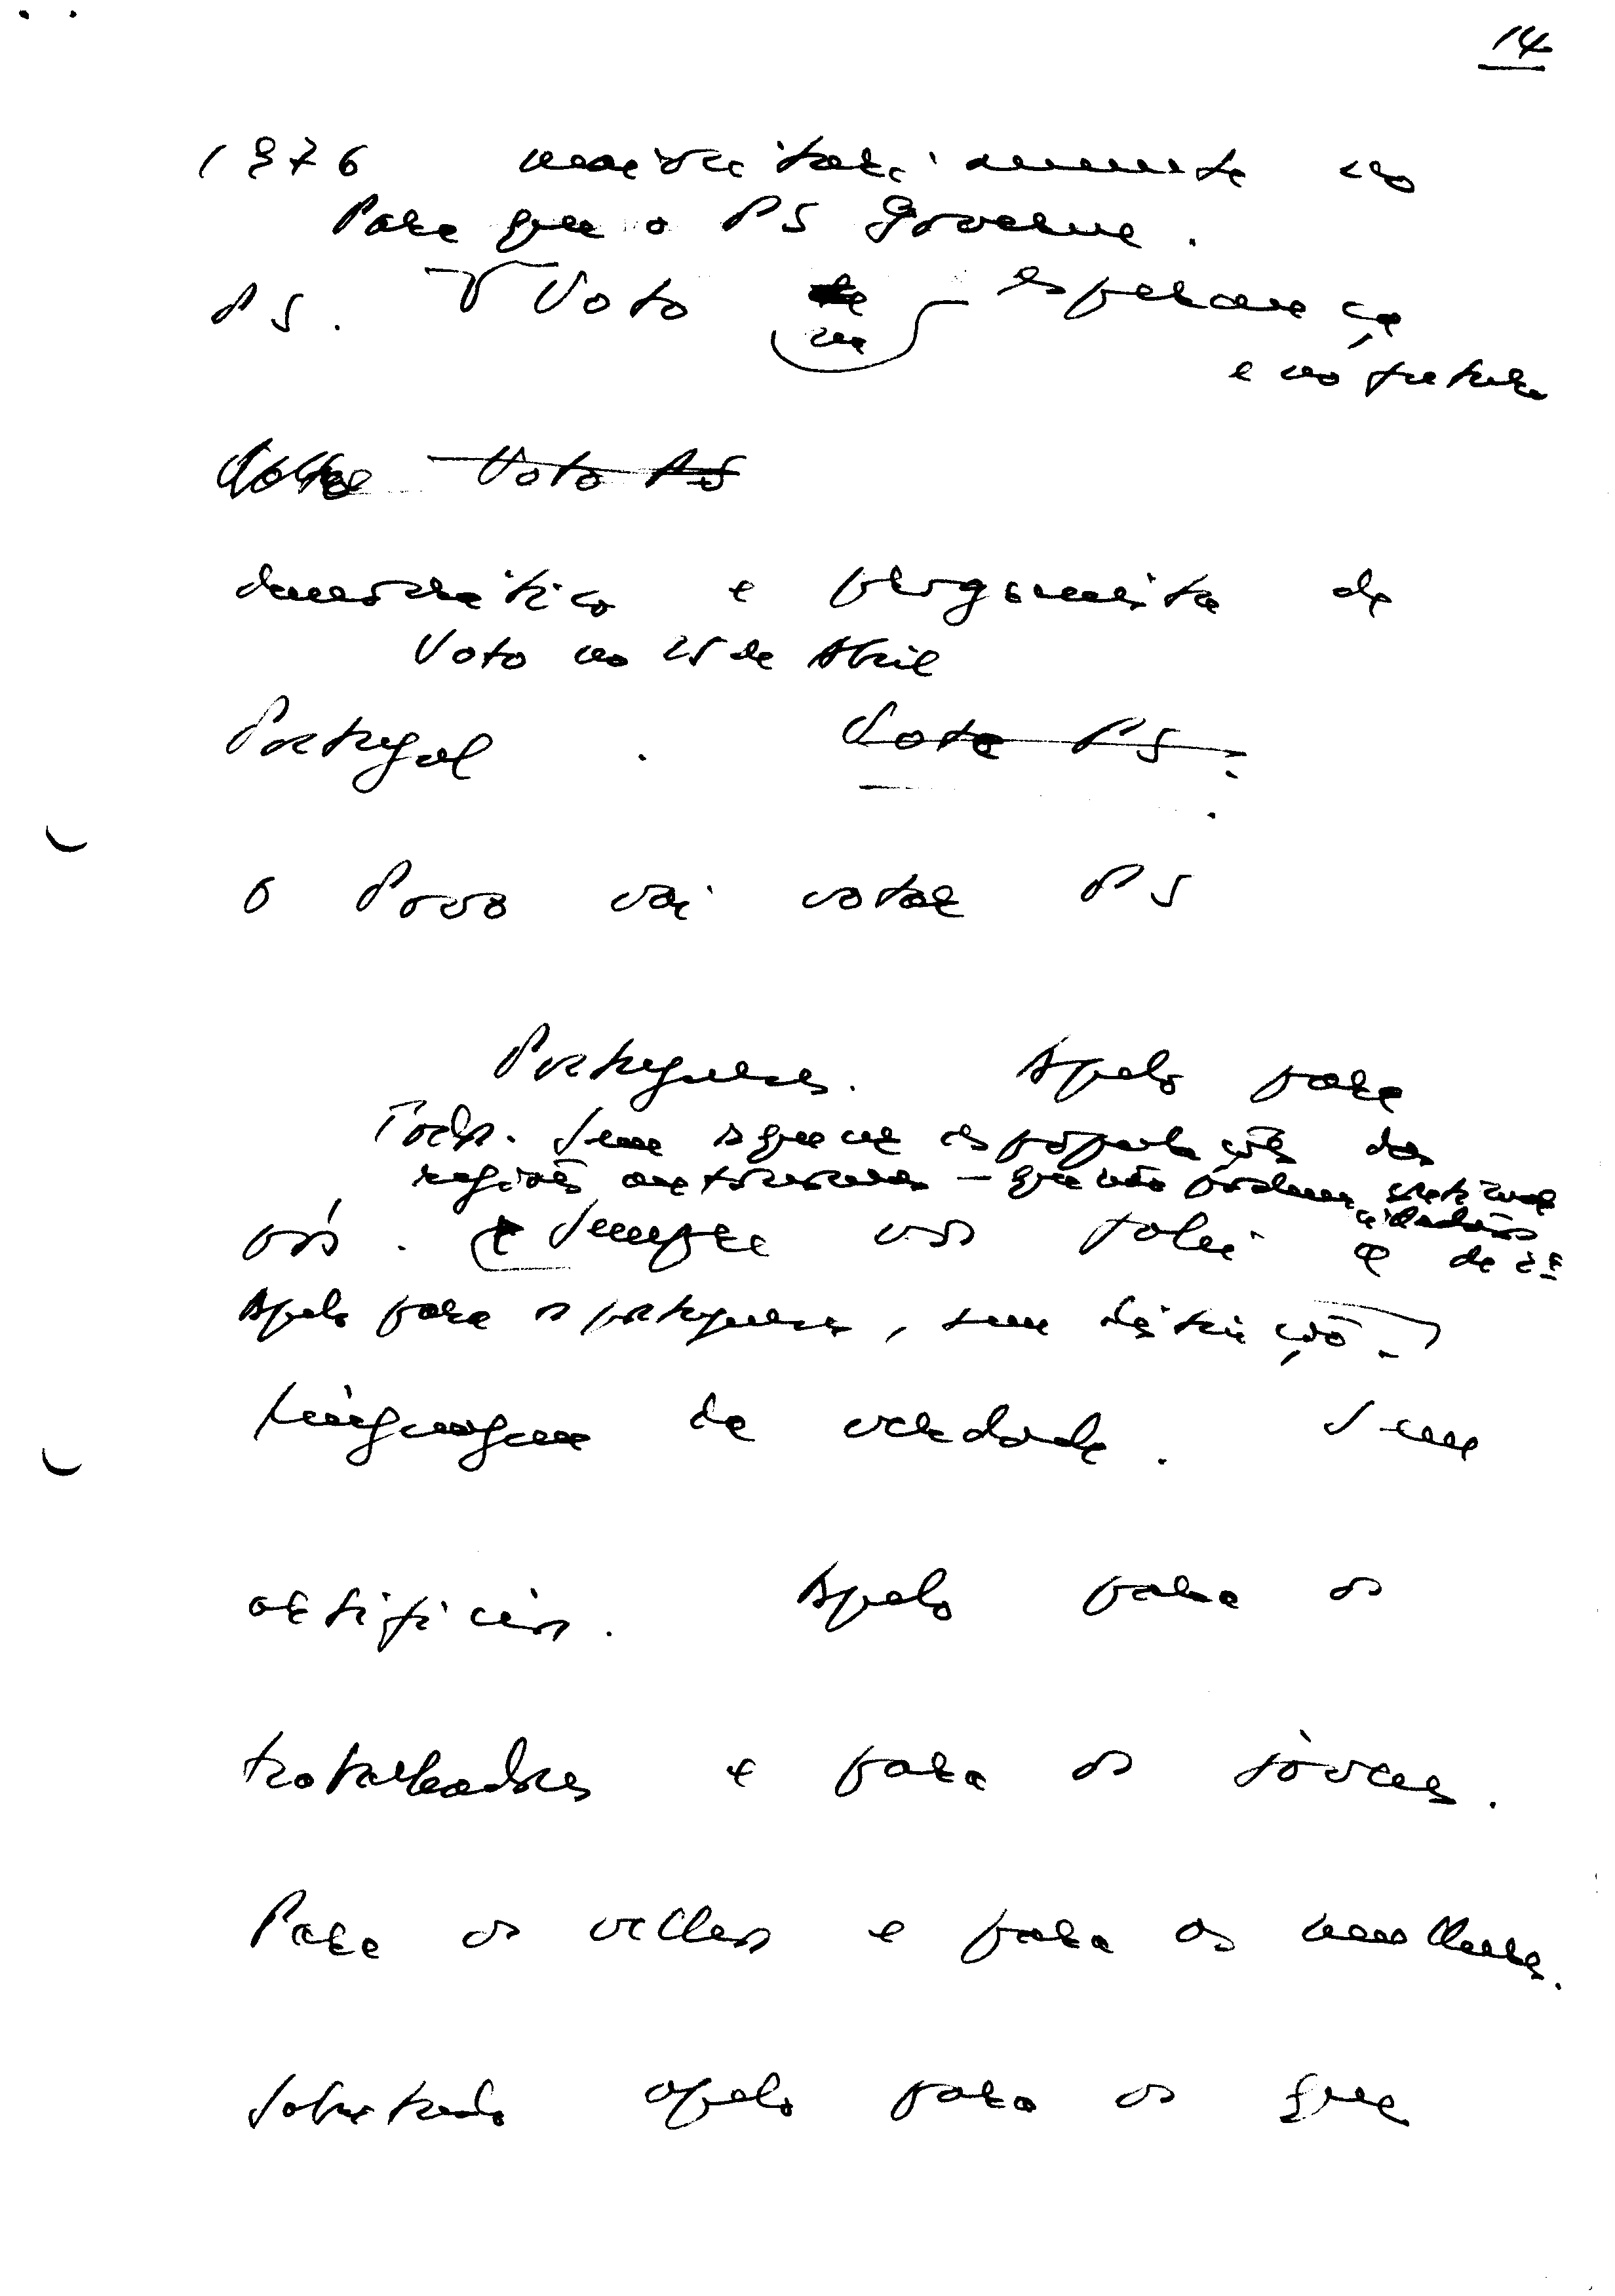 14
1976 maioritariamente no
Para que o PS Governe.
PS. Voto de esperança
na
e no futuro
Volta Voto PS
democrático e progressista de
Voto no 25 de Abril
Portugal. Vote PS.
O Povo vai votar PS
Portugueses. Apelo para
Todos. Sem esquecer as populações das
regiões autónomas — que não podem continuar
cidadãos
vós. e Sempre vos falei a de 2ª
Apelo para os portugueses, sem distinção.
linguagem de verdade. Sem
artifícios. Apelo para os
trabalhadores e para os jóvens.
Para os velhos e para as mulheres.
Sobretudo apelo para os que